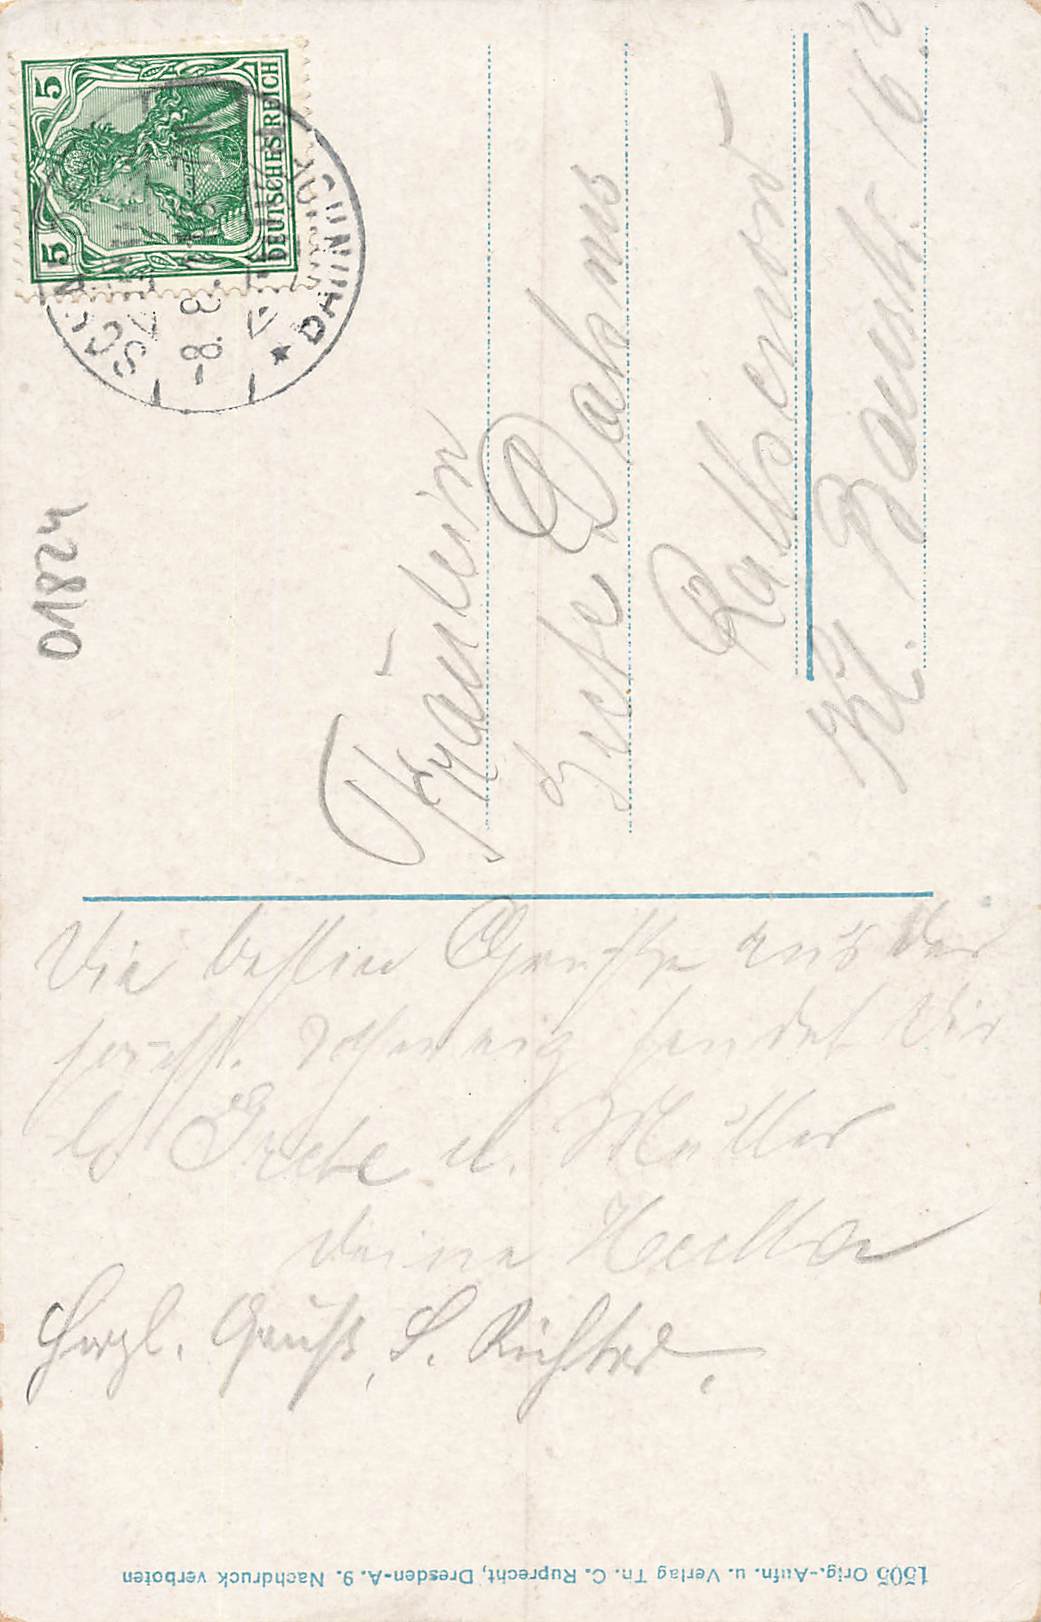 5
5
DEUTSCHES REICH
BAHNHOF
8. 8.
01824
Fräulein
Grete Dahms
Rathenow
Kl. Baustr. 16.
Die besten Grüße aus der
sächs. Schweiz sendet Dir
lb Grete u. Mutter
deine Hella
Herzl. Gruß, S. Richter.
1505 Orig.-Aufn. u. Verlag Th. C. Ruprecht, Dresden-A. 9. Nachdruck verboten